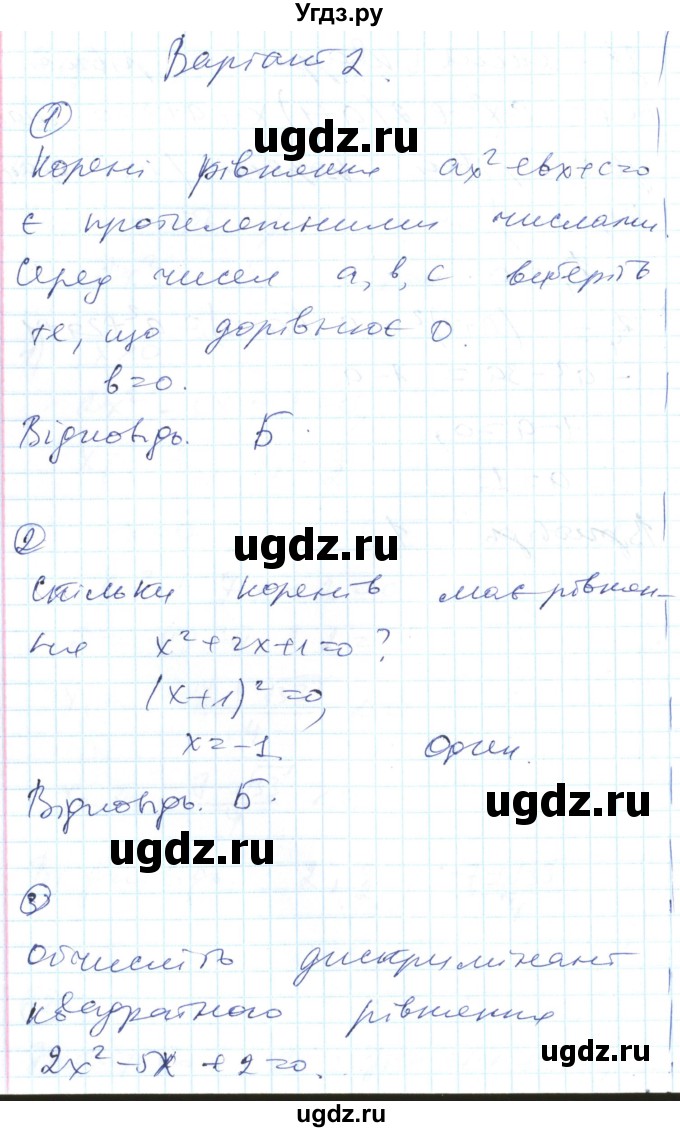 Угдз.ру
Варіант 2.
1
ugdz.ru
Корені рівняння ax²+вx+c=0
є протилежними числами.
Серед чисел a, в, c виберіть
те, що дорівнює 0.
в=0.
Відповідь. Б.
ugdz.ru
2
Скільки коренів має рівнян-
ня x²+2x+1=0?
(x+1)²=0,
x=-1. Один.
Відповідь. Б.
ugdz.ru
ugdz.ru
3
Обчисліть дискримінант
квадратного рівняння
2x²-5x+2=0.
ugdz.ru
ugdz.ru